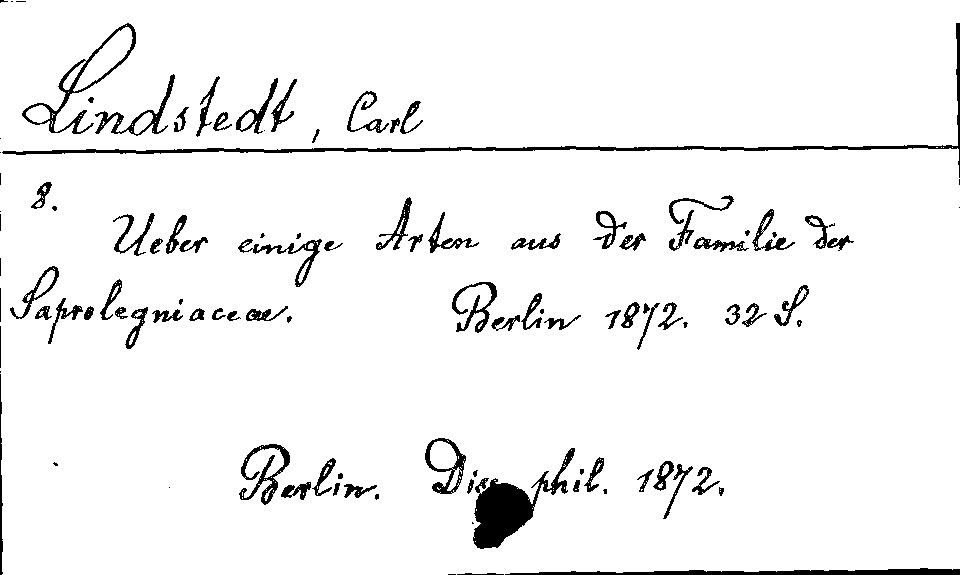 Lindstedt, Carl
8.
Ueber einige Arten aus der Familie der
Saprolegniaceae. Berlin 1872. 32 S.
Berlin. Diss. phil. 1872.